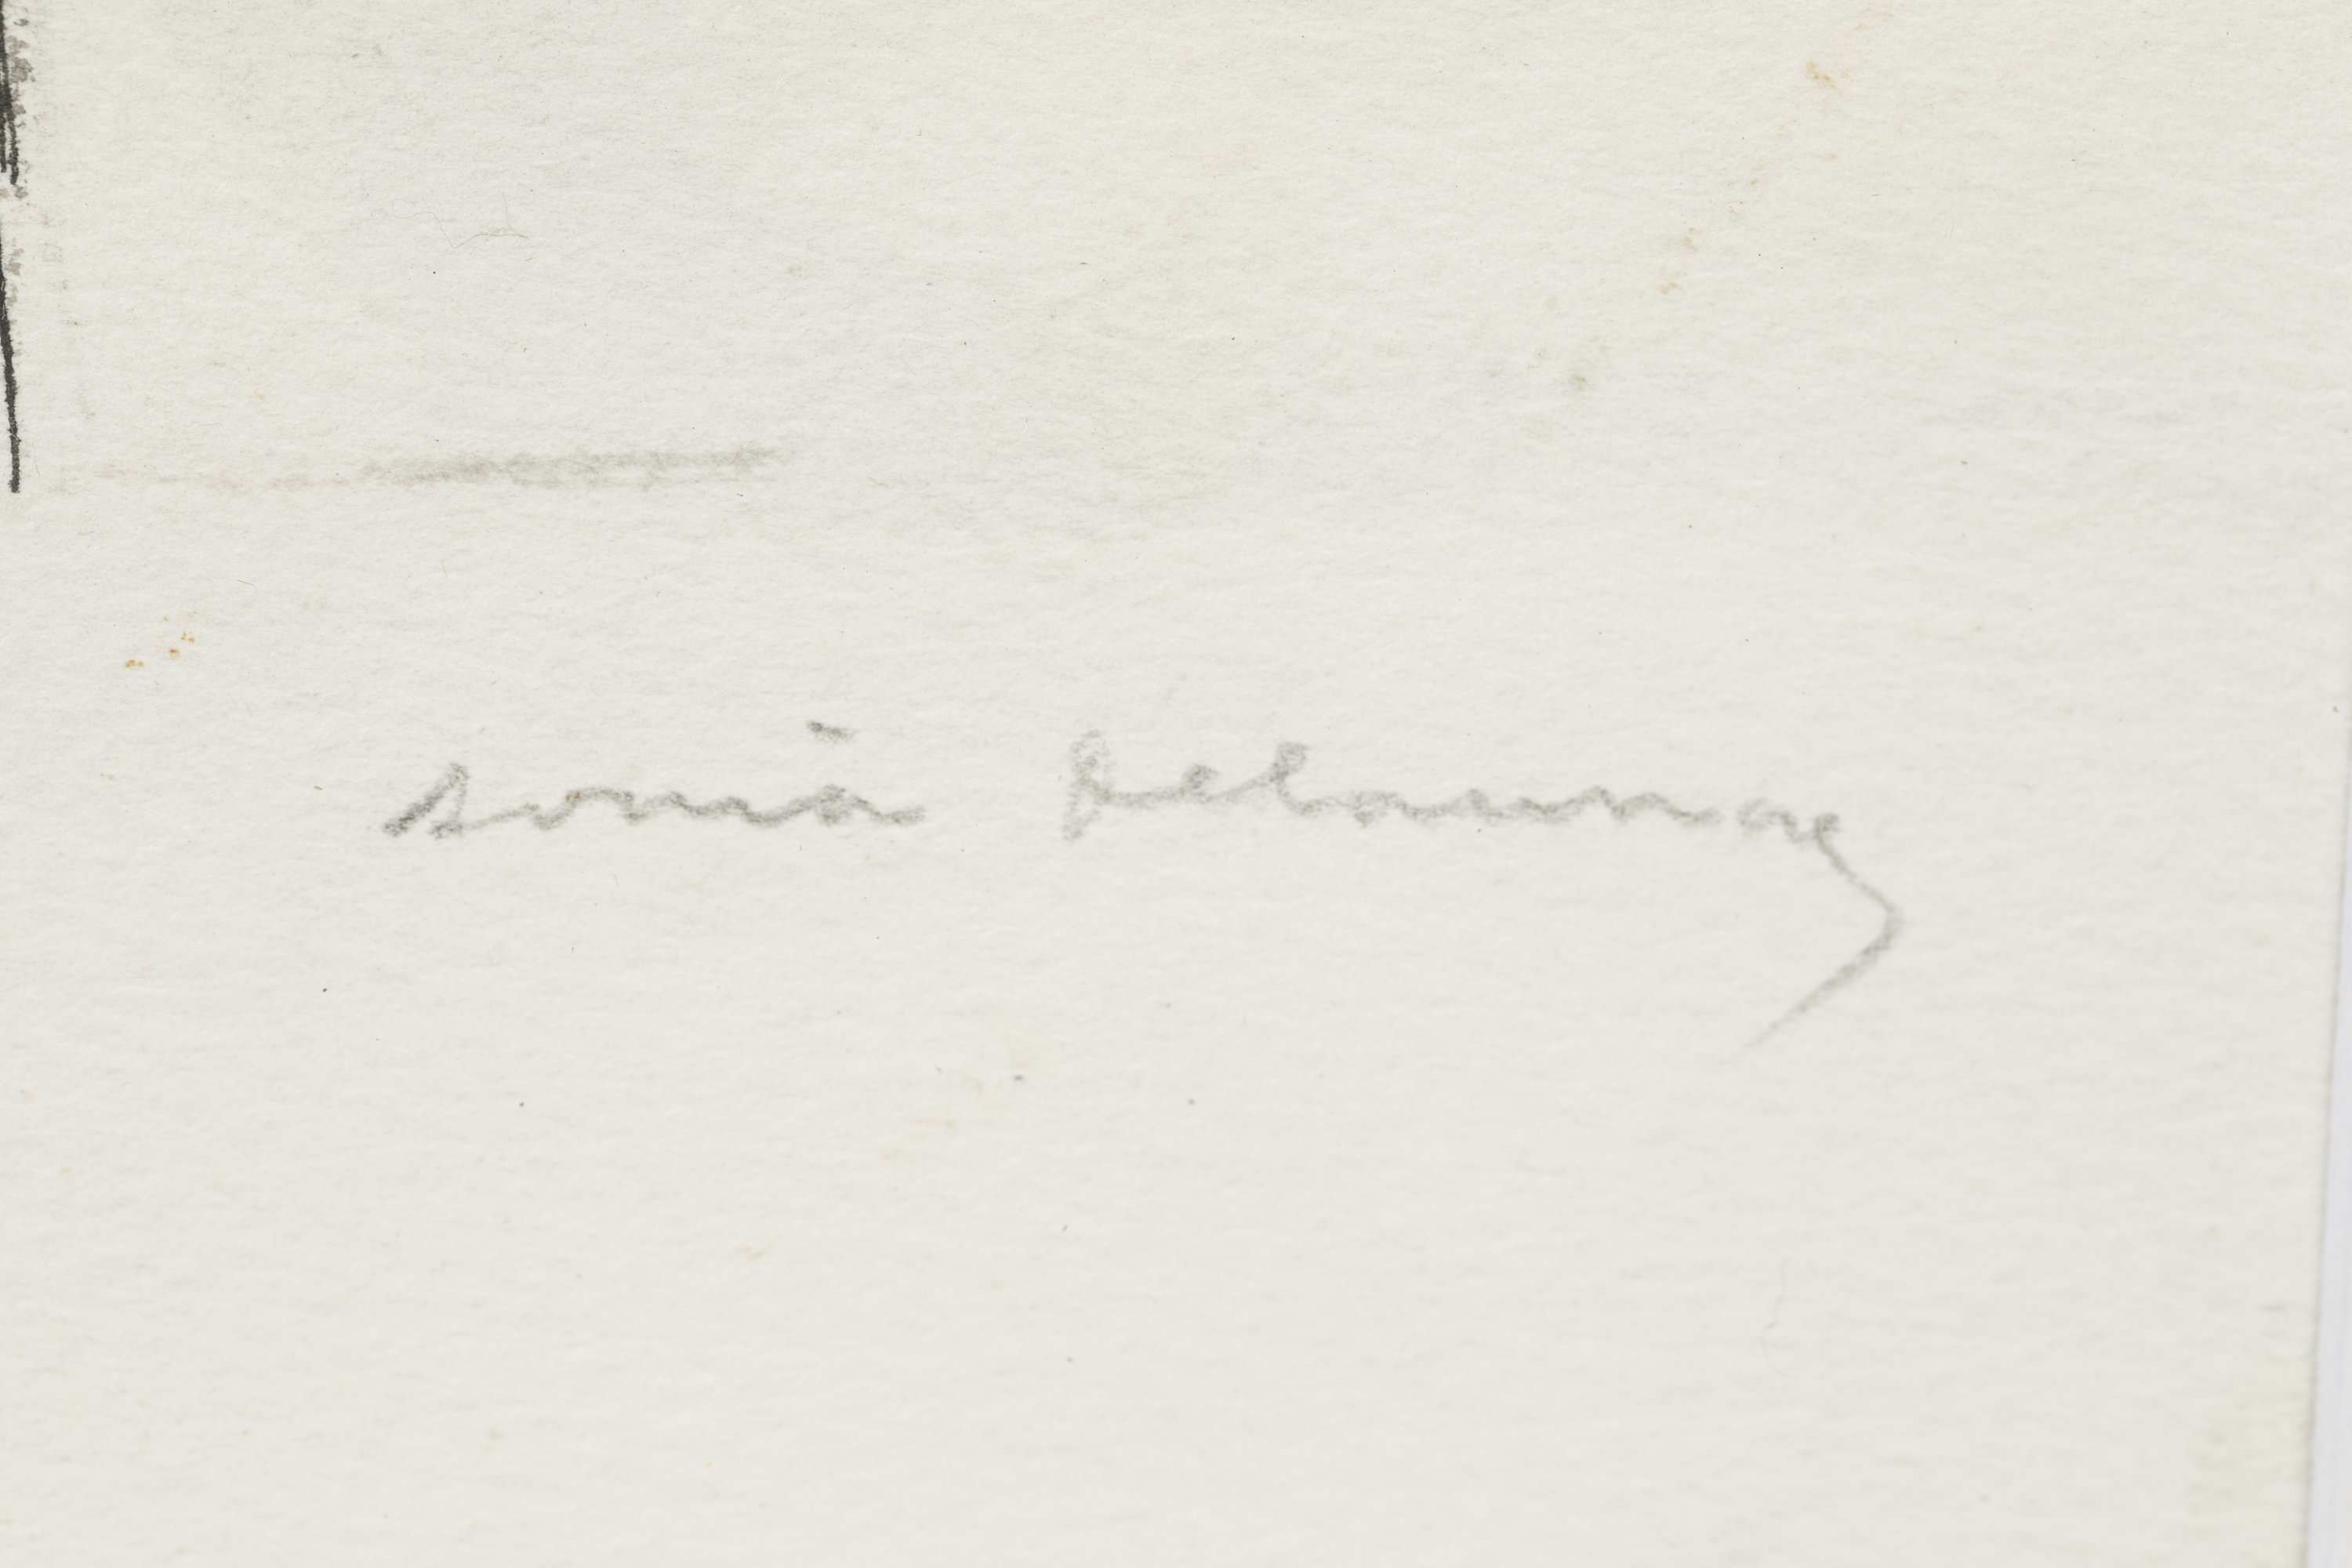 sonia Delaunay